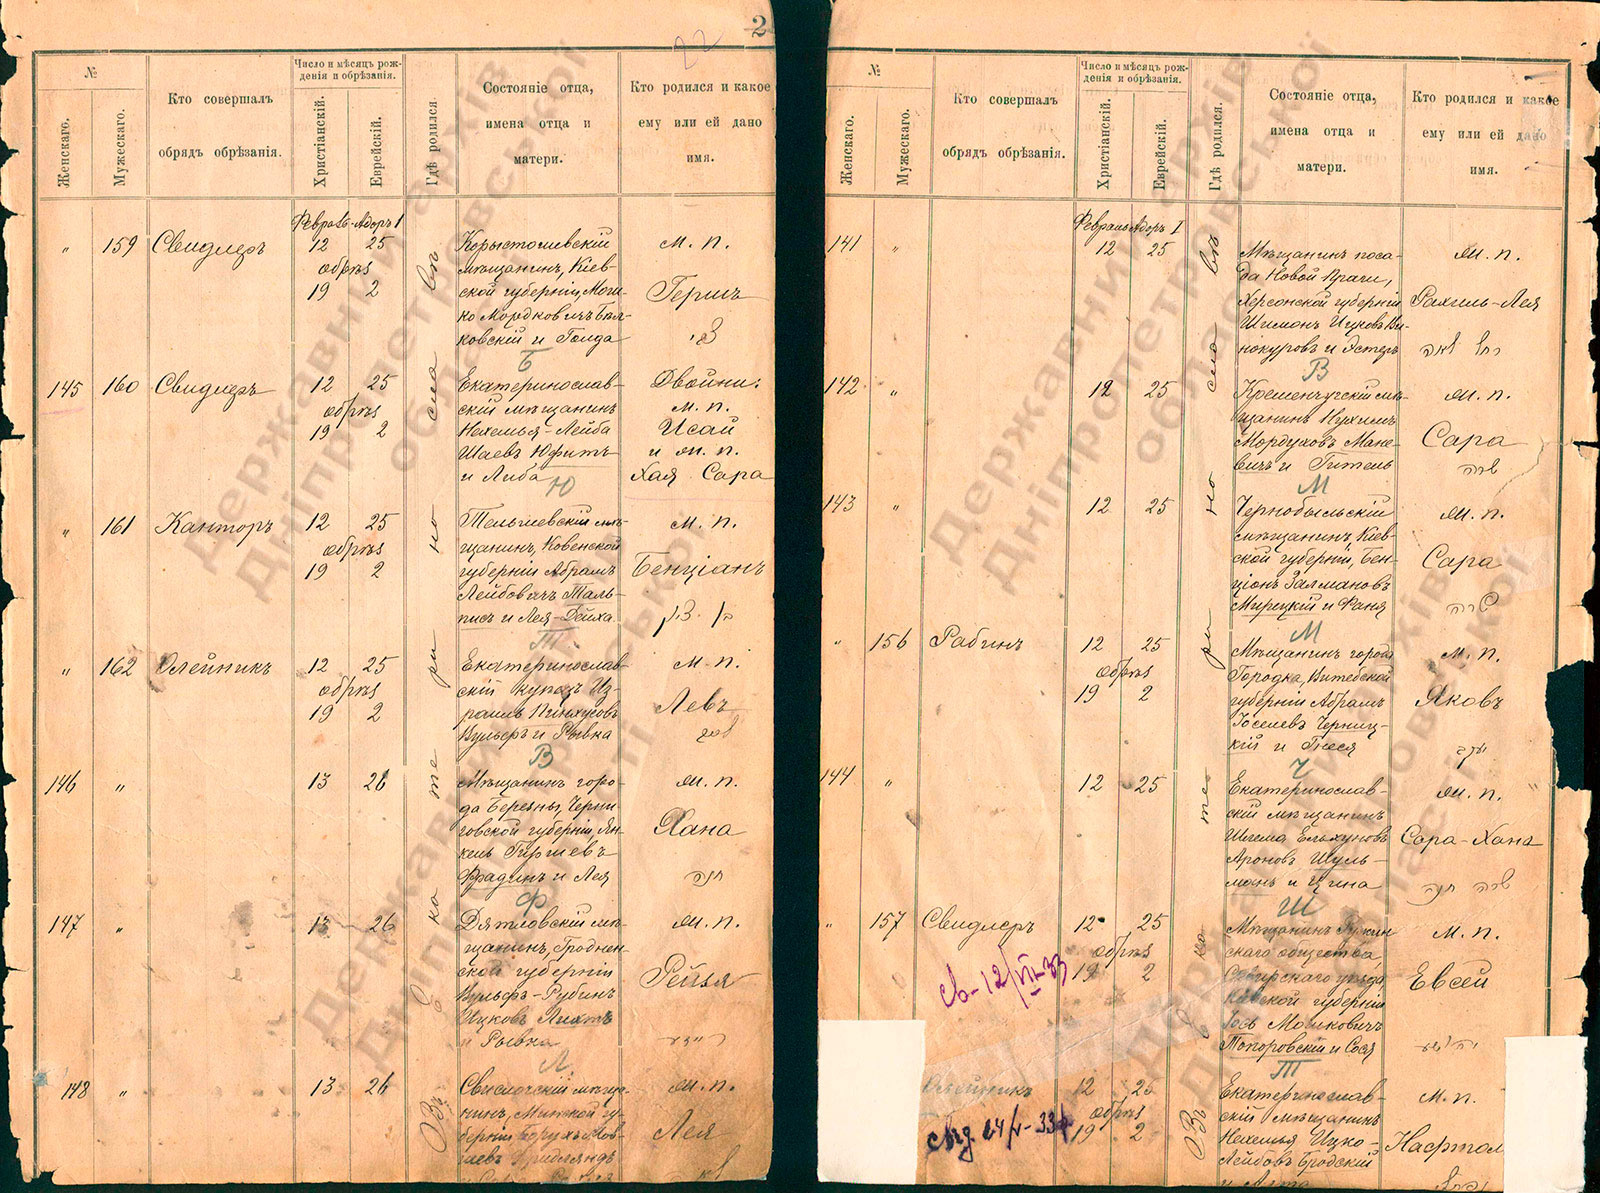 22
2
№
Женскаго.
Мужескаго.
Кто совершалъ
обрядъ обрѣзанія.
Число и мѣсяцъ рож-
денія и обрѣзанія.
Христіанскій.
Еврейскій.
Гдѣ родился.
Состояніе отца,
имена отца и
матери.
Кто родился и какое
ему или ей дано
имя.
Февраль-Адоръ I
„ 159 Свидлеръ 12 25
обрѣз
19 2
мѣщанинъ, Кіев-
ской губерніи, Мош-
ко Мордковичъ Бѣл-
ковскій и Голда
м. п.
Гершъ
Б
145 160 Свидлеръ 12 25
обрѣз
19 2
Екатеринослав-
скій мѣщанинъ
Нехемья-Лейба
Шаевъ Юфитъ
и Либа
Двойни:
м. п.
Исай
и ж. п.
Хая Сара
Ю
„ 161 Канторъ 12 25
обрѣз
19 2
Тельшевскій мѣ-
щанинъ, Ковенской
губерніи Абрамъ
Лейбовичъ Таль-
писъ и Лея-Дейха
м. п.
Бенціанъ
Т
„ 162 Олейникъ 12 25
обрѣз
19 2
Екатеринослав-
скій купецъ Из-
раиль Пинхусовъ
Вульферъ и Рывка
м. п.
Левъ
В
146 „ 13 26
Мѣщанинъ горо-
да Березны, Черни-
говской губерніи, Ян-
кель Гиршевъ
Фрадинъ и Лея
ж. п.
Хана
חנה
Ф
147 „ 13 26
Дятловскій мѣ-
щанинъ, Гроднен-
ской губерніи
Вульфъ-Рубинъ
Ицковъ Лихтъ
и Рывка
ж. п.
Рейзя
Л
148 „ 13 26
Свислочскій мѣща-
нинъ, Минской гу-
берніи Борухъ Мов-
ж. п.
Лея
Въ Екатеринославѣ
№
Женскаго.
Мужескаго.
Кто совершалъ
обрядъ обрѣзанія.
Число и мѣсяцъ рож-
денія и обрѣзанія.
Христіанскій.
Еврейскій.
Гдѣ родился.
Состояніе отца,
имена отца и
матери.
Кто родился и какое
ему или ей дано
имя.
Февраль Адоръ I
141 „ 12 25
Мѣщанинъ поса-
да Новой Праги,
Херсонской губерніи
Шимонъ Ицковъ Ви-
нокуровъ и Эстеръ
ж. п.
Рахиль-Лея
רחל לאה
В
142 „ 12 25
Кременчугскій мѣ-
щанинъ Нухимъ
Мордуховъ Мане-
вичъ и Гитель
ж. п.
Сара
שרה
М
143 „ 12 25
Чернобыльскій
мѣщанинъ, Кіев-
ской губерніи, Бен-
ціонъ Залмановъ
Мирецкій и Фаня
ж. п.
Сара
שרה
М
„ 156 Рабинъ 12 25
обрѣз
19 2
Мѣщанинъ города
Городка, Витебской
губерніи Абрамъ
Іоселевъ Черниц-
кій и Гнеся
м. п.
Яковъ
יעקב
Ч
144 „ 12 25
Екатеринослав-
скій мѣщанинъ
Ароновъ Шуль-
манъ и Цина
ж. п.
Сара-Хана
שרה חנה
Ш
„ 157 Свидлеръ 12 25
обрѣз
19 2
скаго общества
губерніи
Іось Мошковичъ
Топоровскій и Сося
м. п.
Евсей
Т
Олейникъ 12 25
обрѣз
19 2
Екатеринослав-
скій мѣщанинъ
Нехемья Ицко-
Лейбовъ Бродскій
м. п.
Нафтол
Въ Екатеринославѣ
Державний архів
Дніпропетровської
області